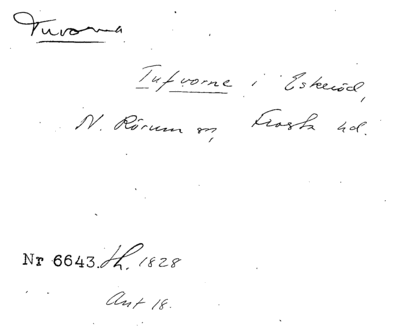 Tuvorna
Tufvorne i Eskeröd,
N. Rörum sn, Frosta hd.
Nr 6643. th. 1828
Ant 18.